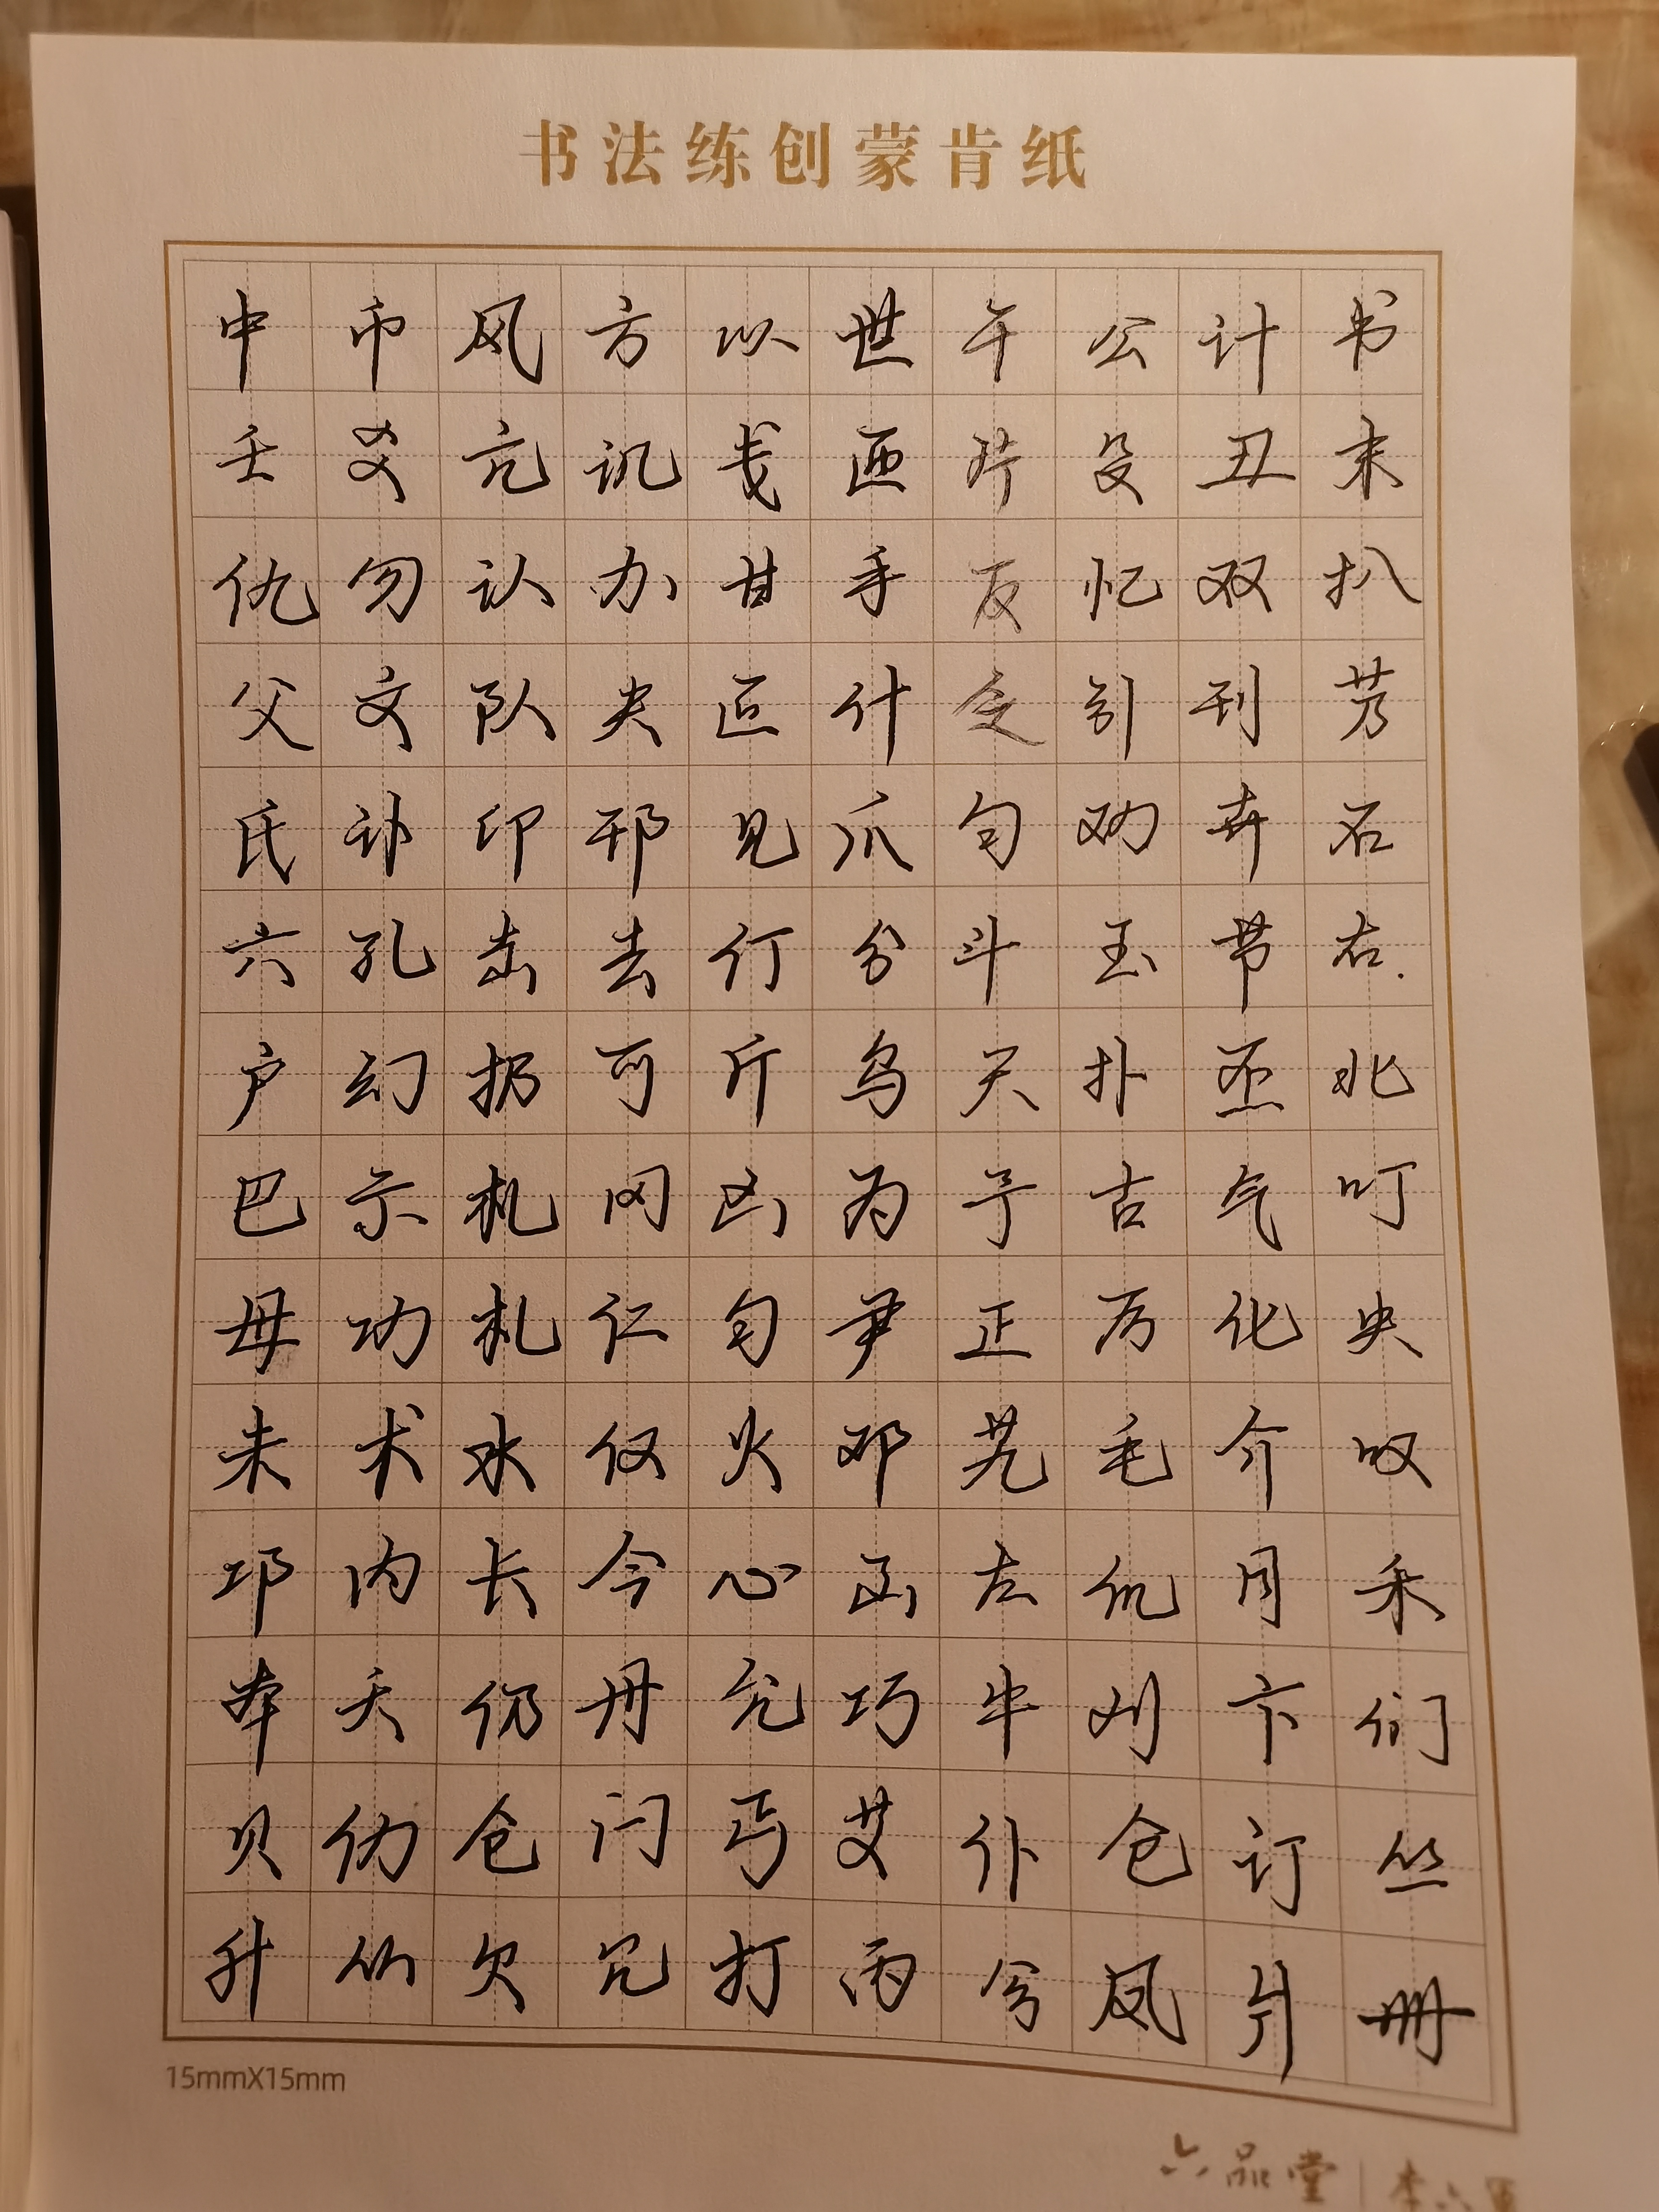 书法练创蒙肯纸
中币风方以世午公计书
壬爻亢讥戋匝片殳丑末
仇勿认办甘手反忆双扒
父文队夫叵什引刊艿
氏讣印邗见爪匀劝卉石
六孔击去仃分斗玉节右
户幻扔可斤乌天扑丕北
巴示札冈凶为予古气叮
毋功札仁匀尹正厉化央
未术水仅火邓艽毛介叹
邛内长今心凼左仉月禾
本夭仍丹允巧牛刈卞们
贝仂仓闩丐艾仆仓订丛
升仂欠冗打丙兮凤爿册
15mmX15mm
六品堂 | 李六军